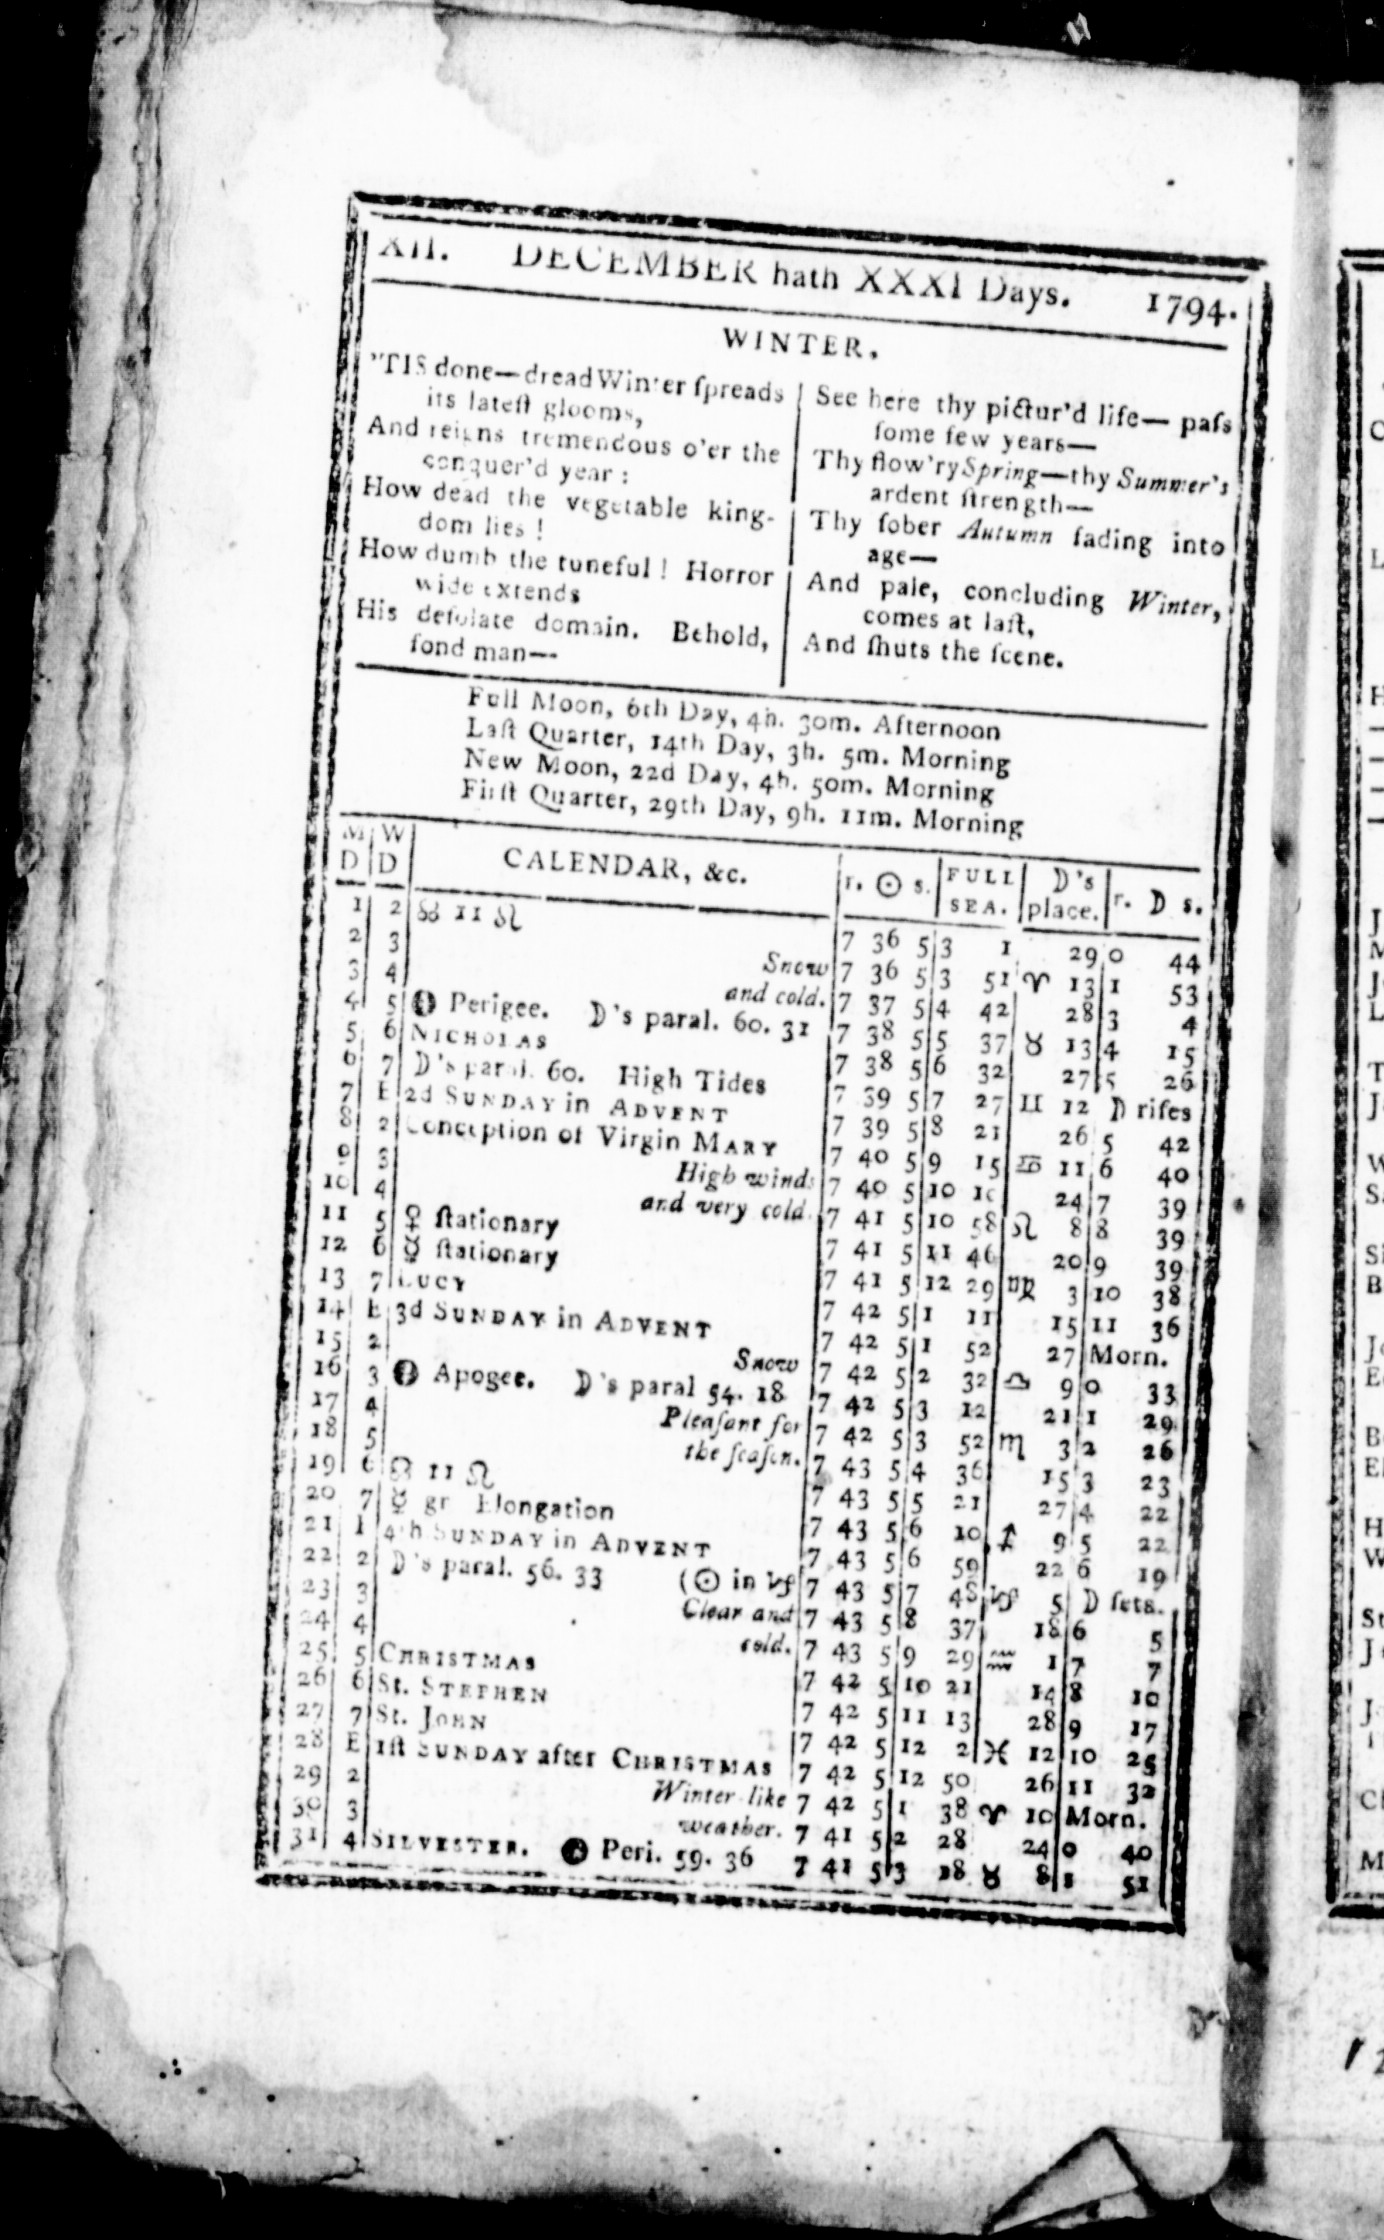 XII. DECEMBER hath XXXI Days. 1794.
WINTER.
'TIS done—dread Winter ſpreads
its lateſt glooms,
And reigns tremendous o'er the
conquer'd year :
How dead the vegetable king-
dom lies !
How dumb the tuneful ! Horror
wide extends
His deſolate domain. Behold,
fond man—
See here thy pictur'd life— paſs
ſome few years—
Thy flow'ry Spring—thy Summer's
ardent ſtrength—
Thy ſober Autumn fading into
age—
And pale, concluding Winter,
comes at laſt,
And ſhuts the ſcene.
Full Moon, 6th Day, 4h. 30m. Afternoon
Laſt Quarter, 14th Day, 3h. 5m. Morning
New Moon, 22d Day, 4h. 50m. Morning
Firſt Quarter, 29th Day, 9h. 11m. Morning
M D W D CALENDAR, &c. r. ☉ s. FULL SEA. ☽'s place. r. ☽ s.
1 2 ☊ 11 ♌ 7 36 5 3 1 29 0 44
2 3 Snow 7 36 5 3 51 ♈ 13 1 53
3 4 and cold. 7 37 5 4 42 28 3 4
4 5 Perigee. ☽'s paral. 60. 31 7 38 5 5 37 ♉ 13 4 15
5 6 NICHOLAS 7 38 5 6 32 27 5 26
6 7 ☽'s paral. 60. High Tides 7 39 5 7 27 ♊ 12 ☽ riſes
7 E 2d SUNDAY in ADVENT 7 39 5 8 21 26 5 42
8 2 Conception of Virgin MARY 7 40 5 9 15 ♋ 11 6 40
9 3 High winds 7 40 5 10 10 24 7 39
10 4 and very cold. 7 41 5 10 58 ♌ 8 8 39
11 5 ♀ ſtationary 7 41 5 11 46 20 9 39
12 6 ☿ ſtationary 7 41 5 12 29 ♍ 3 10 38
13 7 LUCY 7 42 5 1 11 15 11 36
14 E 3d SUNDAY in ADVENT 7 42 5 1 52 27 Morn.
15 2 Snow 7 42 5 2 32 ♎ 9 0 33
16 3 Apogee. ☽'s paral 54. 18 7 42 5 3 12 21 1 29
17 4 Pleaſant for 7 42 5 3 52 ♏ 3 2 26
18 5 the ſeaſon. 7 43 5 4 36 15 3 23
19 6 ☊ 11 ♌ 7 43 5 5 21 27 4 22
20 7 ☿ gr Elongation 7 43 5 6 10 ♐ 9 5 22
21 E 4th SUNDAY in ADVENT 7 43 5 6 59 22 6 19
22 2 ☽'s paral. 56. 33 (☉ in ♑ 7 43 5 7 48 ♑ 5 ☽ ſets.
23 3 Clear and 7 43 5 8 37 18 6 5
24 4 cold. 7 43 5 9 29 ♒ 1 7 7
25 5 CHRISTMAS 7 42 5 10 21 14 8 10
26 6 St. STEPHEN 7 42 5 11 13 28 9 17
27 7 St. JOHN 7 42 5 12 2 ♓ 12 10 25
28 E 1ſt SUNDAY after CHRISTMAS 7 42 5 12 50 26 11 32
29 2 Winter like 7 42 5 1 38 ♈ 10 Morn.
30 3 weather. 7 41 5 2 28 24 0 40
31 4 SILVESTER. Peri. 59. 36 7 41 5 3 18 ♉ 8 1 51